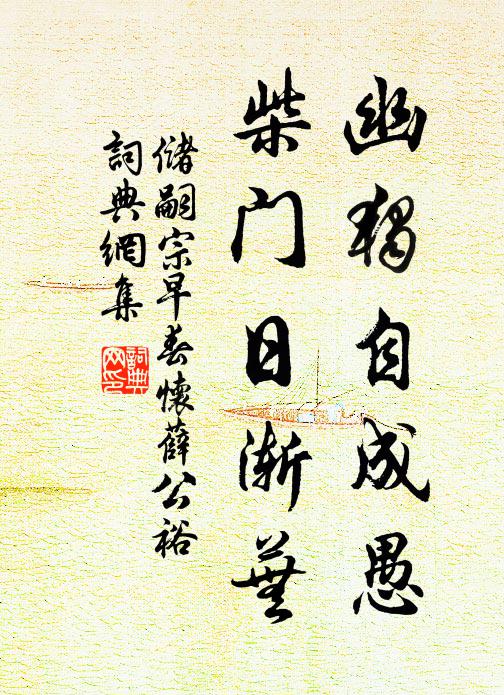 幽独自成愚
柴门日渐蕪
儲嗣宗早春懷薛公裕
詞典網集
詞典
网印